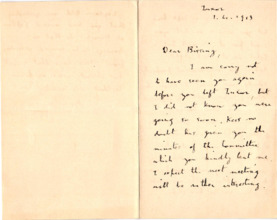 Luxor
Dear
I am sorry not
to have seen you again
before you left Luxor, but
I did not know you were
going so soon. Keep no
doubt has given you the
minutes of the Committee
which you kindly lent me.
I expect the next meeting
will be rather interesting.